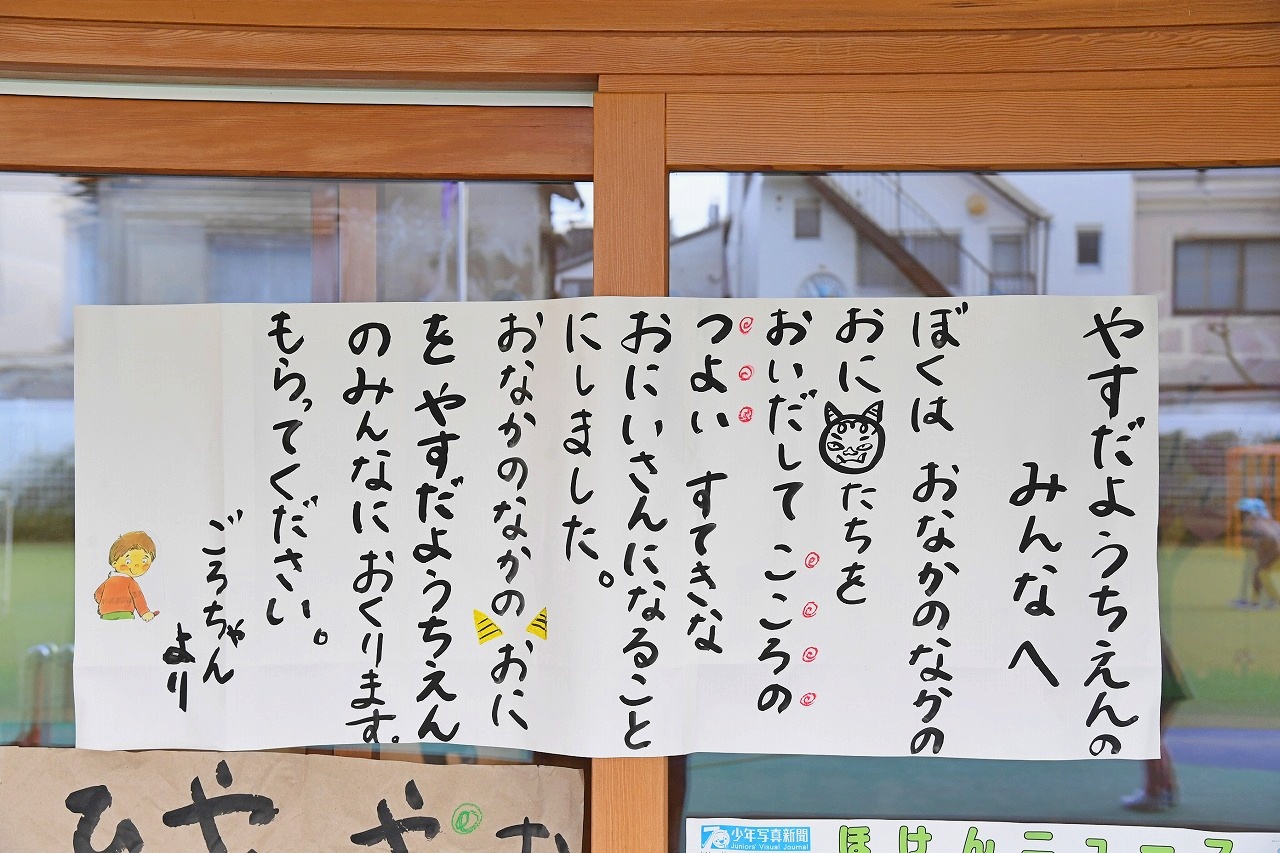 やすだようちえんの
みんなへ
ぼくは おなかのなかの
おにたちを
おいだして こころの
つよい すてきな
おにいさんになること
にしました。
おなかのなかの おに
を やすだようちえん
のみんなに おくります。
もらってください。
ごろちゃん
より
ひやや
少年写真新聞
Juniors' Visual Journal
ほけんニュース